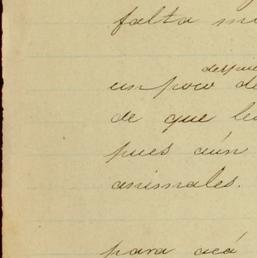 falta
despues
un poco de
de que le
pues aún
animales.
para acá